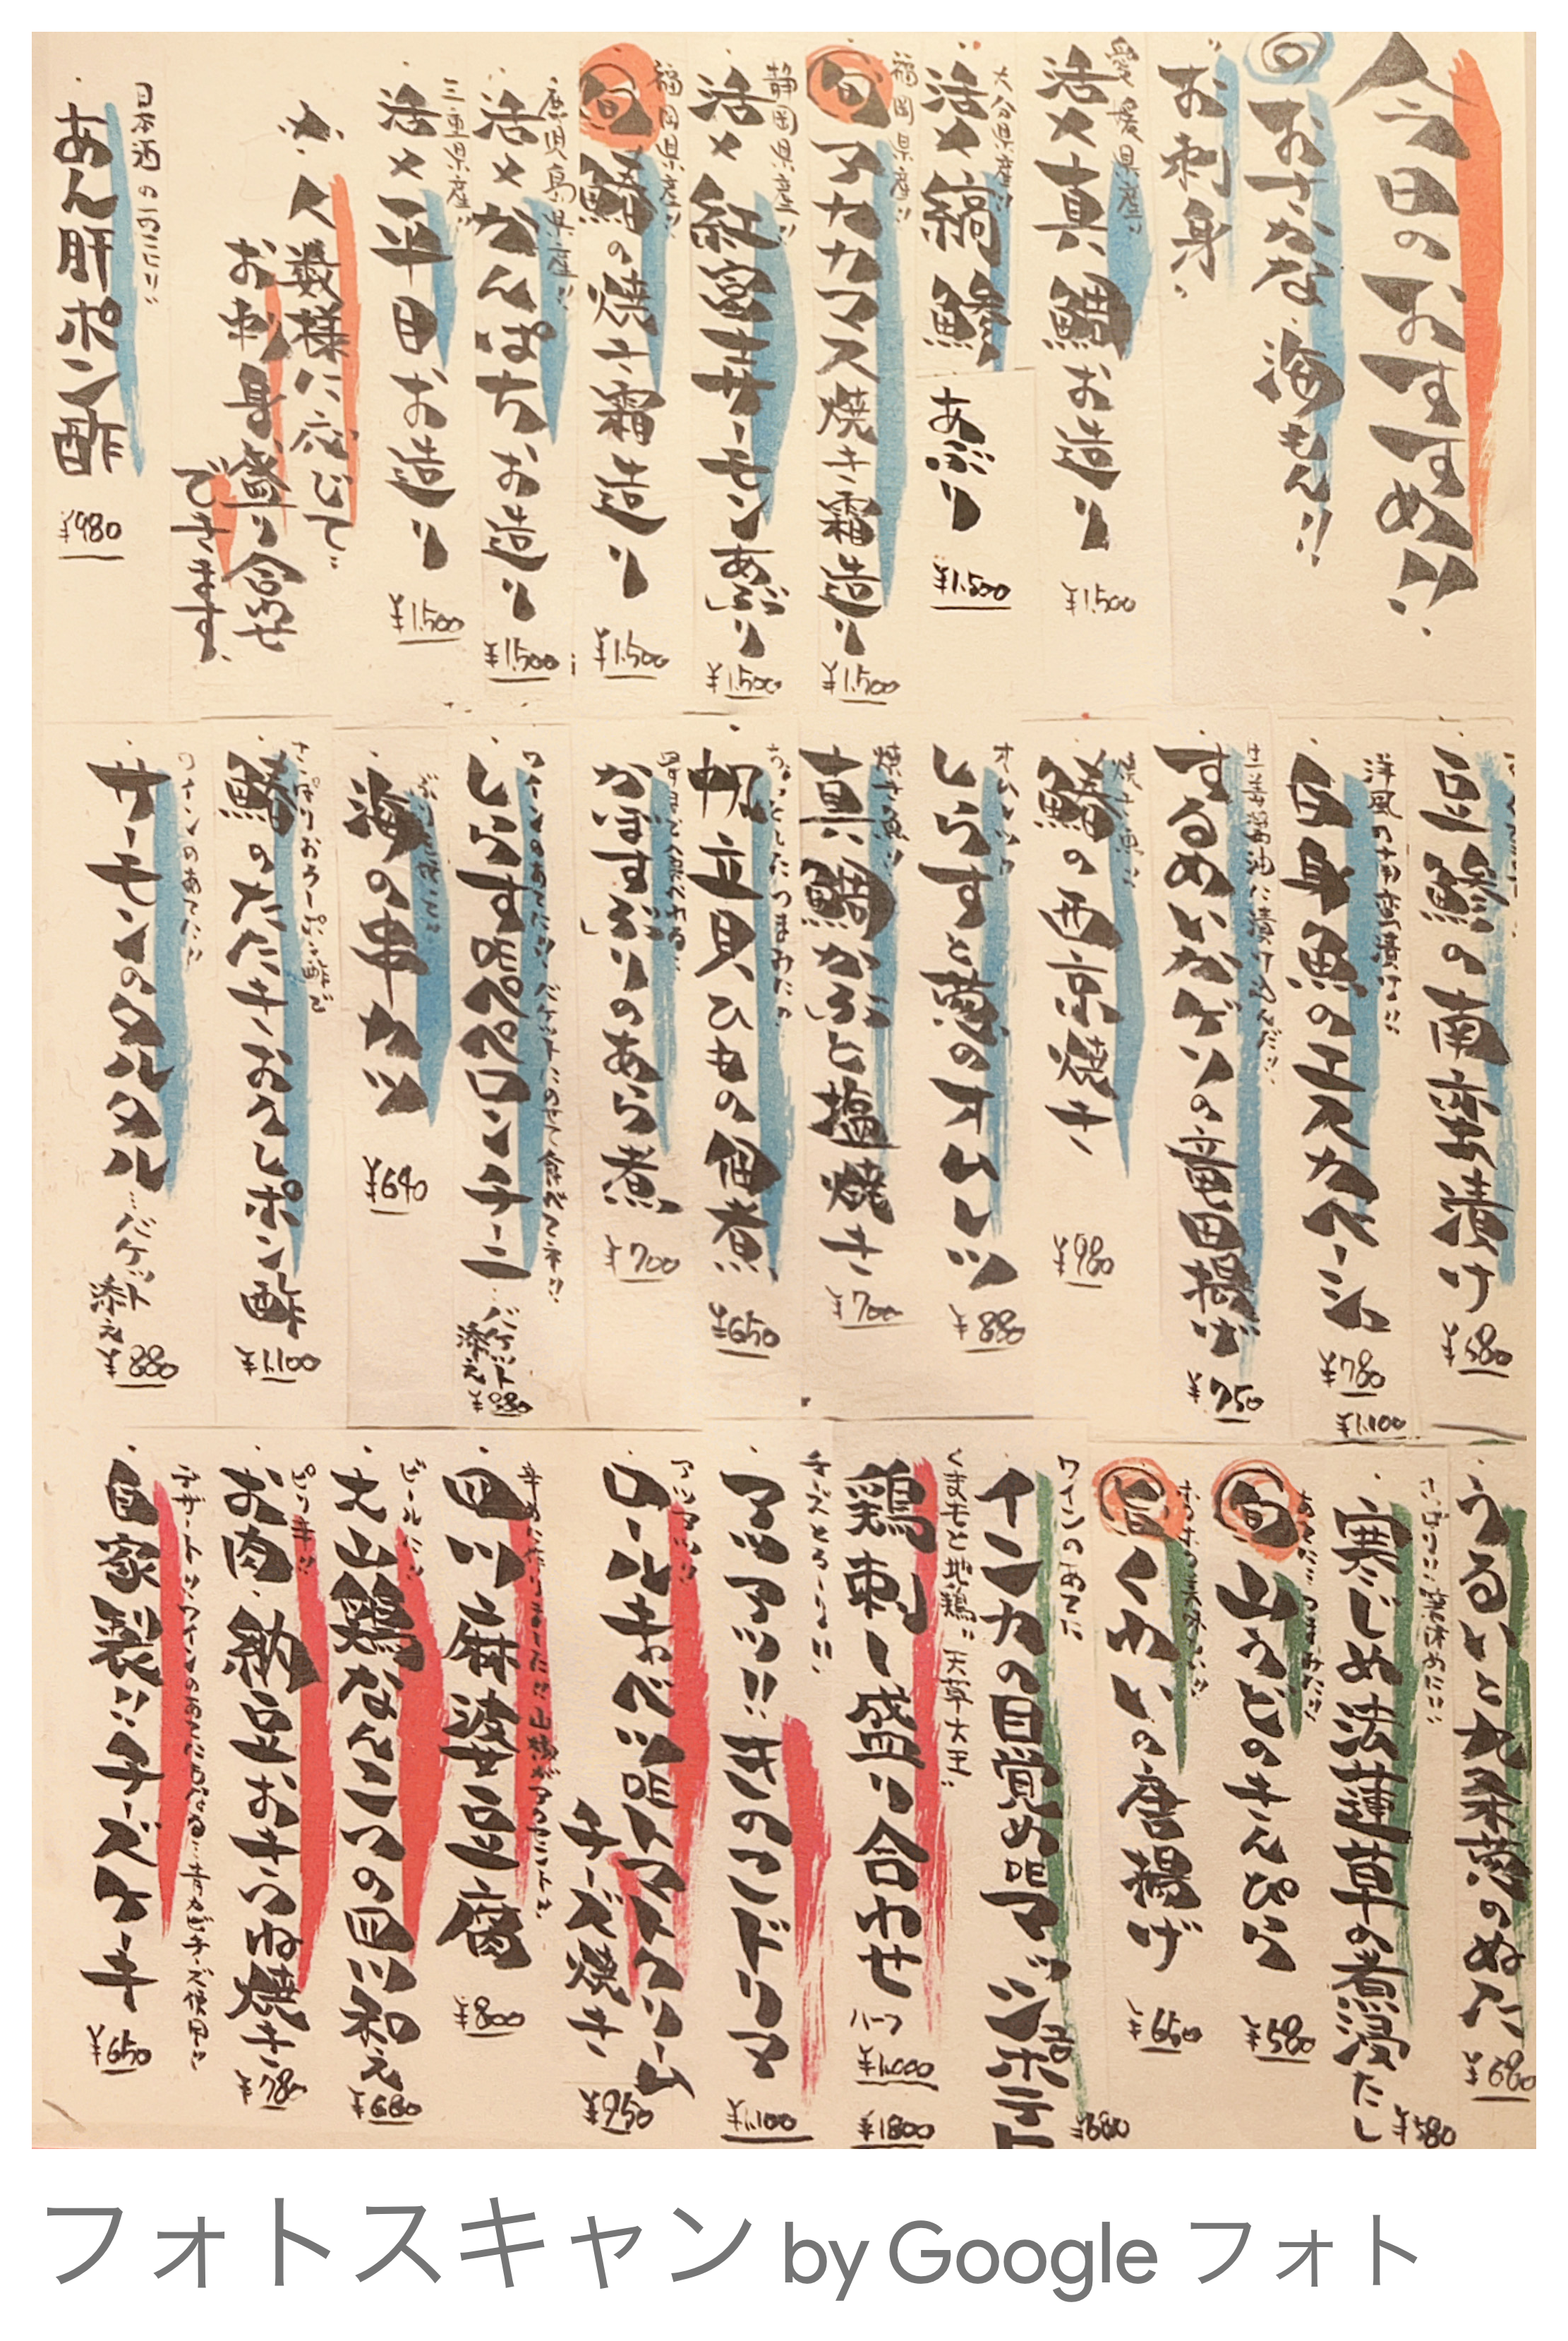 今日のおすすめ!!
旬 おさかな・海もん!!
お刺身・
愛媛県産!!
活〆真鯛お造り
¥1,500
大分県産!!
活〆縞鯵
あぶり
¥1,500
福岡県産!!
旬 マカカマス焼き霜造り
¥1,500
静岡県産!!
活〆紅富士サーモンあぶり
¥1,500
福岡県産!!
旬 鰆の焼き霜造り
¥1,500
鹿児島県産!!
活〆かんぱちお造り
¥1,500
三重県産!!
活〆平目お造り
¥1,500
人数様に応じて…
お刺身盛り合わせ
できます、
日本酒の
あん肝ポン酢
¥980
豆鯵の南蛮漬け
¥580
洋風の南蛮漬け!!
白身魚のエスカベーシュ
¥780
¥1,100
生姜醤油に漬け込んだ!!
するめいかゲソの竜田揚げ
¥750
焼き魚!!
鰆の西京焼き
¥980
オムレツ!!
しらすと葱のオムレツ
¥880
焼き魚!!
真鯛かぶと塩焼き
¥700
ちょっとしたつまみに!!
帆立貝ひもの佃煮
¥650
かますぶりのあら煮
¥700
ワインのあてに!! バケットにのせて食べてネ!!
しらすdeペペロンチーニ
…バケット添え
¥880
海の串カツ
¥640
さっぱりおろしポン酢で
鰆のたたきおろしポン酢
¥1,100
ワインのあてに!!
サーモンのタルタル
…バケット添え
¥880
うるいと九条葱のぬた
¥680
寒じめ法蓮草の煮浸たし
¥580
旬 山うどのきんぴら
¥580
旨 くわいの唐揚げ
¥650
ワインのあてに
インカの目覚めdeマッシュポテト
¥680
くまモと地鶏!! 天草大王!!
鶏刺し盛り合わせ
ハーフ
¥1,000
¥1800
チーズとろ〜り!!
アツアツ!!きのこドリア
¥1,100
アツアツ!!
ロールキャベツdeトマトクリーム
チーズ焼き
¥950
辛めに作りました!!山椒がアクセント♪
四川麻婆豆腐
¥800
ビールに!!
大山鶏なんこつの四川和え
¥680
ピリ辛!!
お肉・納豆おきつね焼き
¥780
デザートに!!ワインのあてにもなる…青カビチーズ使用!!
自家製!!チーズケーキ
¥650
フォトスキャン by Google フォト